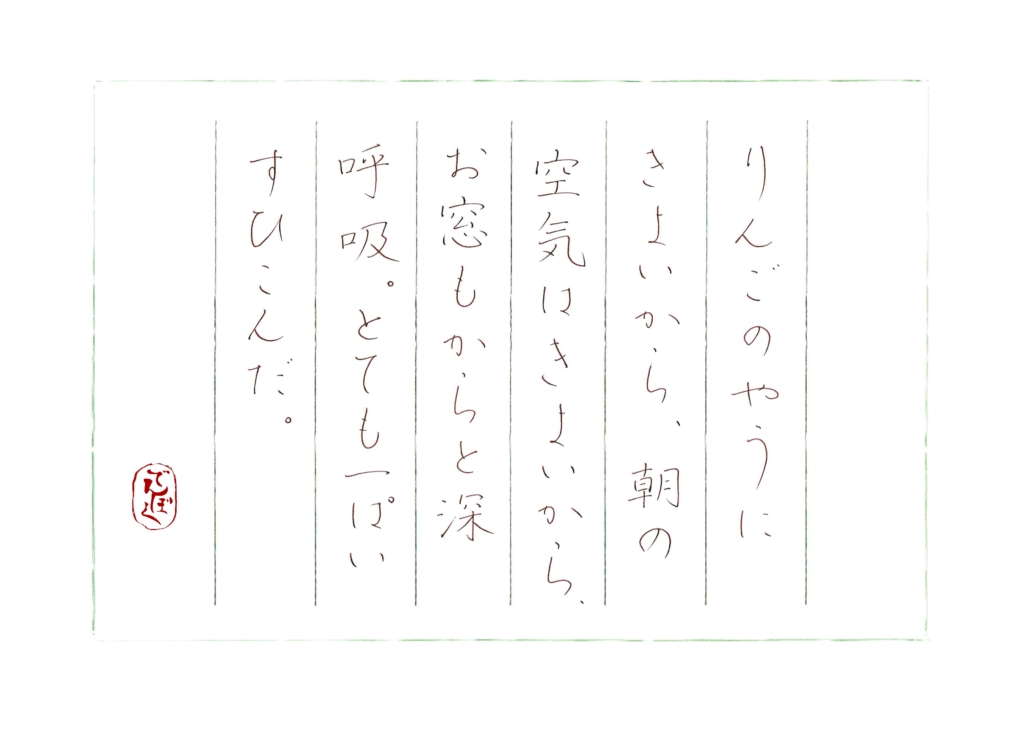 りんごのやうに
きよいから、朝の
空気はきよいから、
お窓もからと深
呼吸。とても一ぱい
すひこんだ。
でんぼく